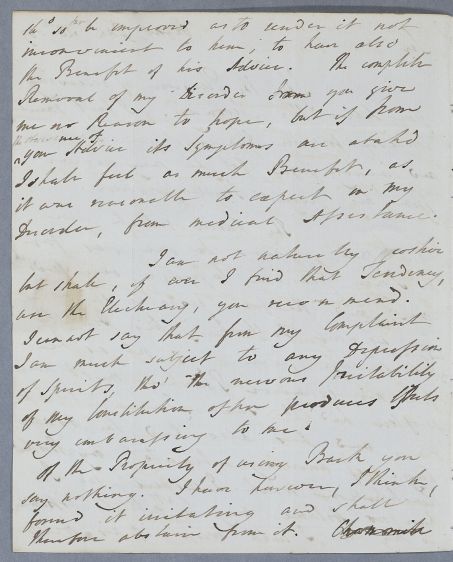 tho' so to be employed as to render it not
inconvenient to him, to have also
the Benefit of his Advice. The complete
Removal of my Disorder you give
me no Reason to hope, but if from
the observance of
your Advice its Symptoms are abated
I shall feel as much Benefit, as
it were reasonable to expect in my
Disorder, from medical Assistance.
I am not naturally costive
but shall, if ever I find that Tendency,
use the Electuary, you recommend.
I cannot say that from my Complaint
I am much subject to any Depression
of Spirits, tho' the nervous Irritability
of my Constitution often produces Effects
very embarassing to me.
Of the Propriety of using Bark you
say nothing. I have however, I think,
found it irritating and shall
therefore abstain from it. Chamomile